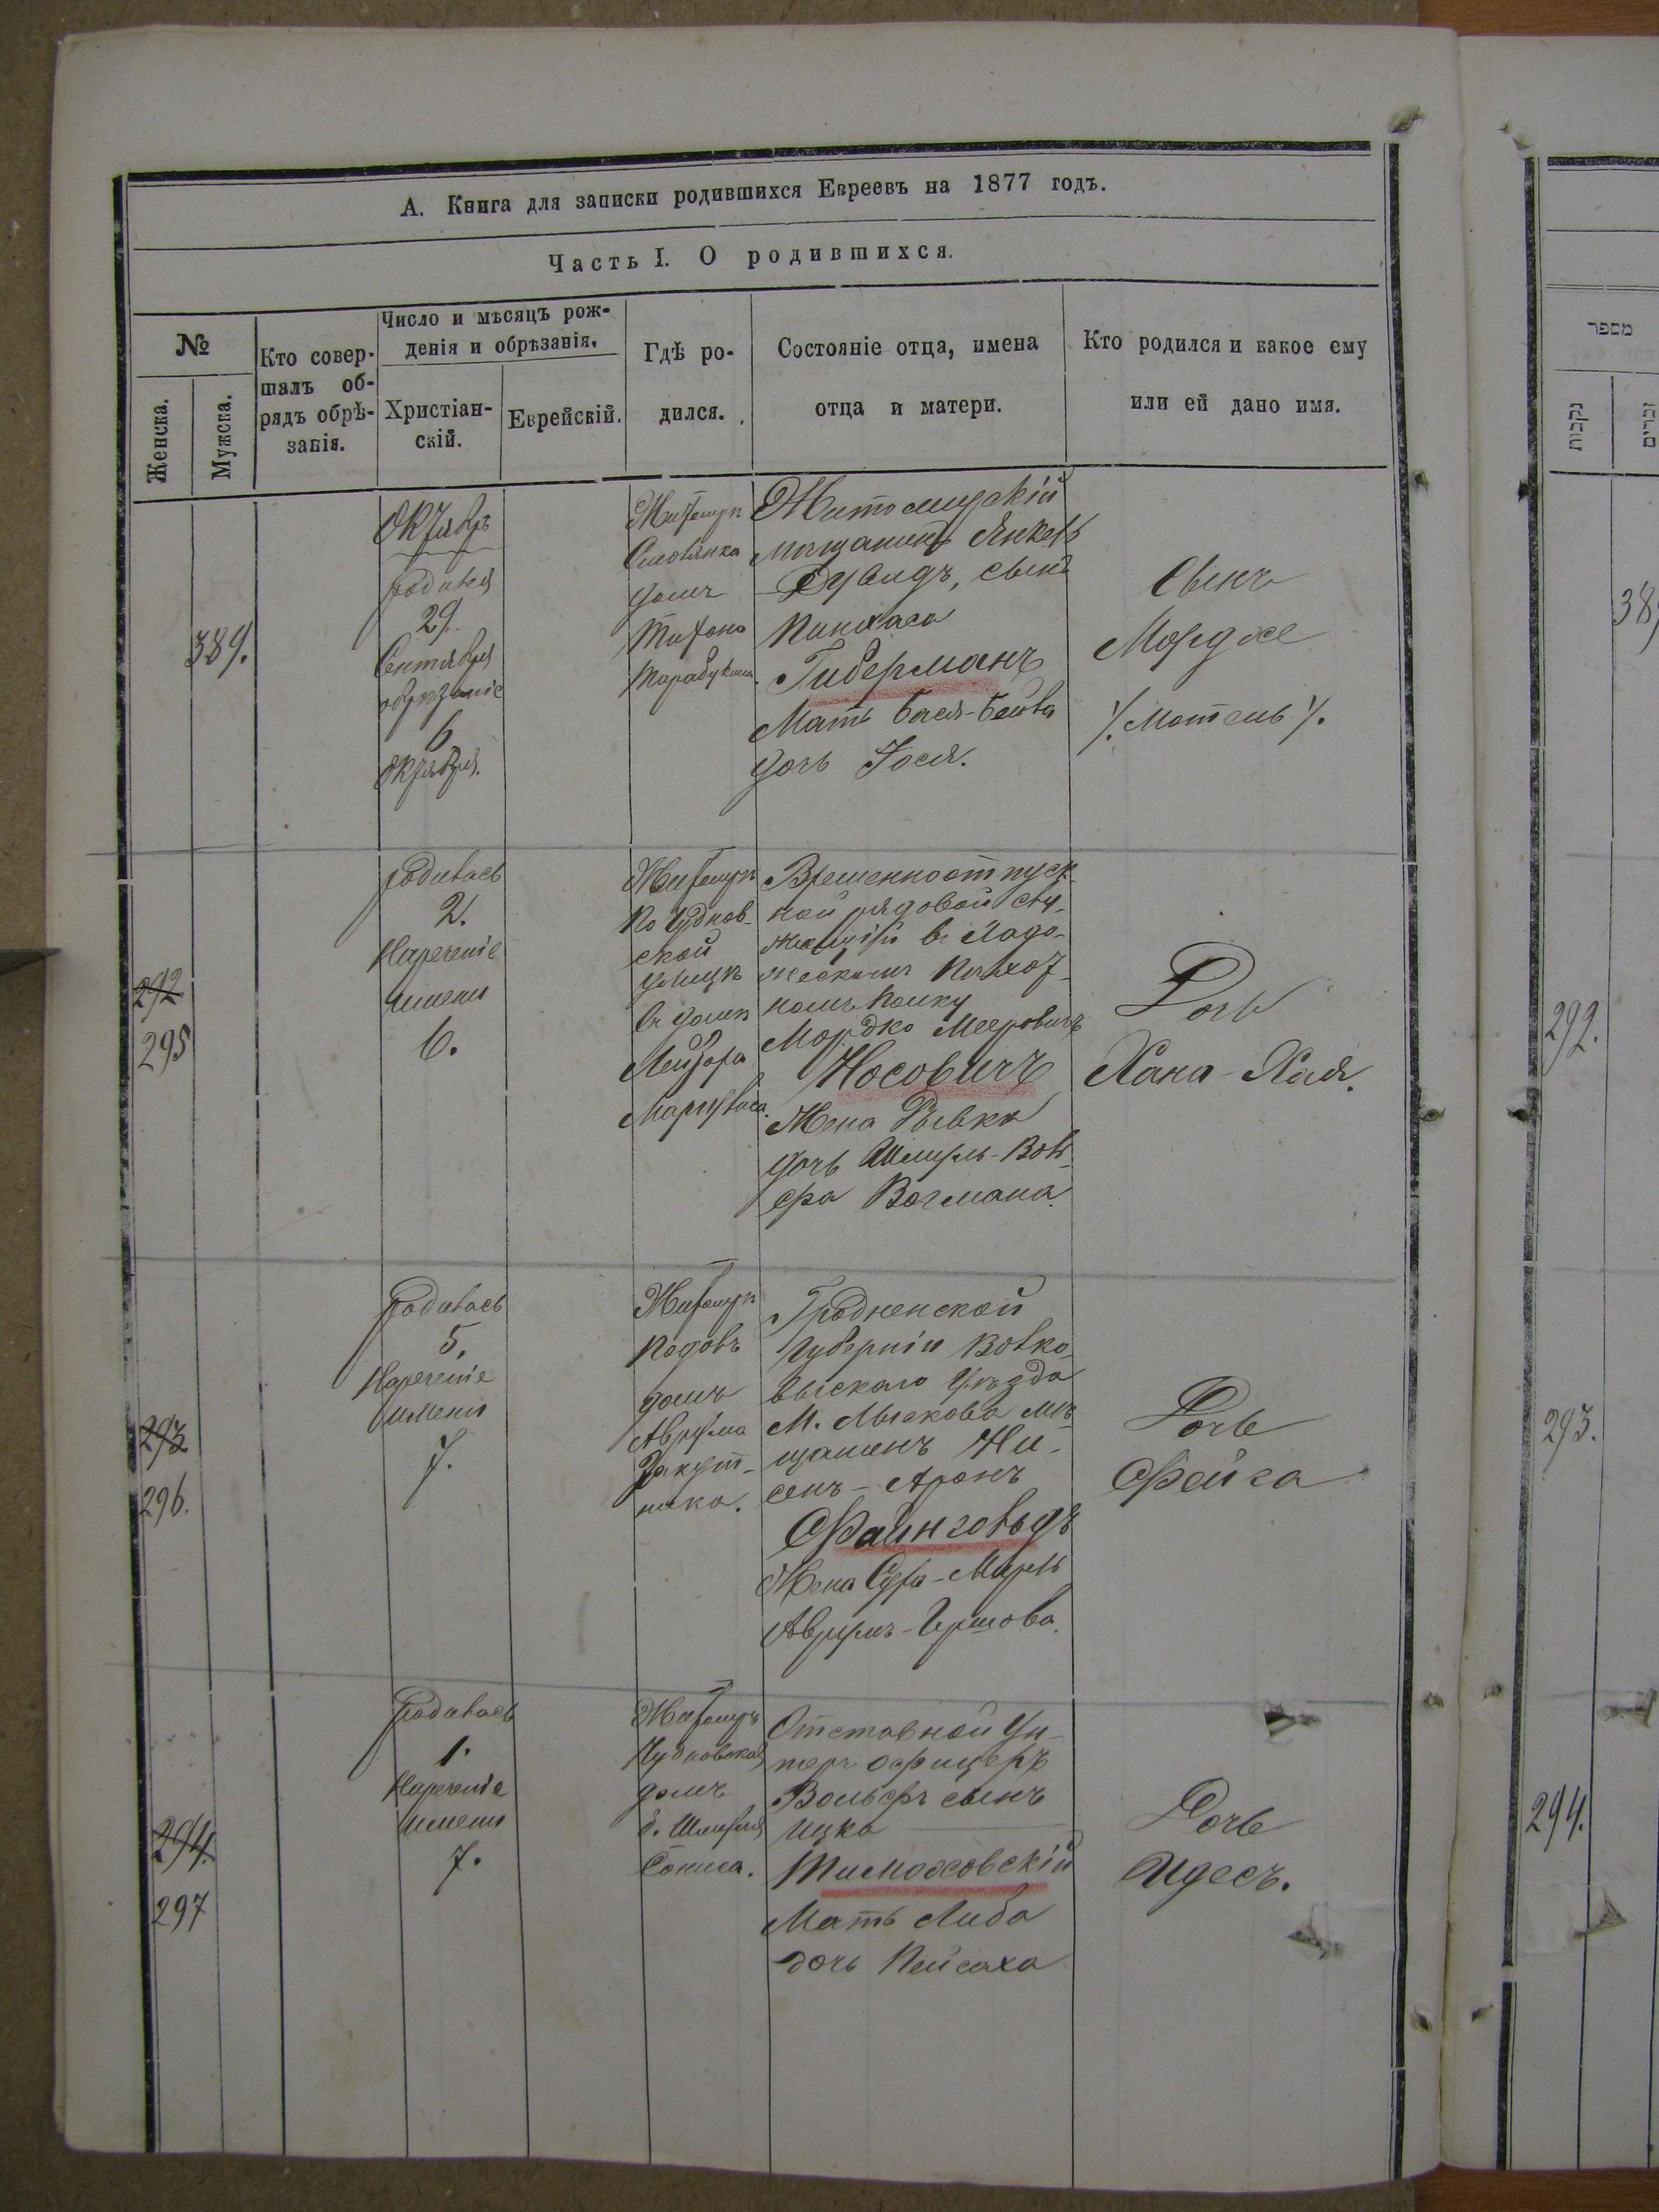 А. Книга для записки родившихся Евреевъ на 1877 годъ.
Часть I. О родившихся.
№
Женска.
Мужска.
Кто совер-
шалъ об-
рядъ обрѣ-
занія.
Число и мѣсяцъ рож-
денія и обрѣзанія.
Христіан-
скій.
Еврейскій.
Гдѣ ро-
дился.
Состояніе отца, имена
отца и матери.
Кто родился и какое ему
или ей дано имя.
389.
Октябрь
родился
29.
Сентября
обрѣзаніе
6
октября.
Житомирѣ
домъ
Житомирскій
мѣщанинъ Янкель
Дувидъ, сынъ
Пинхаса
Гиберманъ
Мать Бася-Бейла
дочь Іося.
Сынъ
Мордхе
/. Мотель /.
292
295
родилась
2.
Нареченіе
имени
6.
Житомирѣ
по Чуднов-
ской
улицѣ
въ домѣ
Лейзора
Временноотпуск-
ной рядовой слу-
жащій въ Ладо-
жескомъ Пѣхот-
номъ полку
Мордко Мееровичъ
Носовичъ
Жена Рывка
дочь Шмуль-Воль-
фа Вогмана.
Дочь
Хана-Хая.
293
296.
родилась
5.
Нареченіе
имени
7.
Житомирѣ
Подолъ
домъ
Аврума
Закут-
ника.
Гродненской
Губерніи Волко-
выскаго Уѣзда
М. Лыскова мѣ-
щанинъ Ни-
сенъ-Аронъ
Файнгольдъ
Жена Сура-Мирль
Аврумъ-Гершова.
Дочь
Фейга
294.
297
родилась
1.
Нареченіе
имени
7.
Житомиръ
Чудновская
домъ
Отставной Ун-
теръ офицеръ
Вольфъ сынъ
Ицка
Тимоховскій
Мать Либа
дочь Пейсаха
Дочь
Идесъ.
מספר
נקבות
זכרים
292.
293.
294.